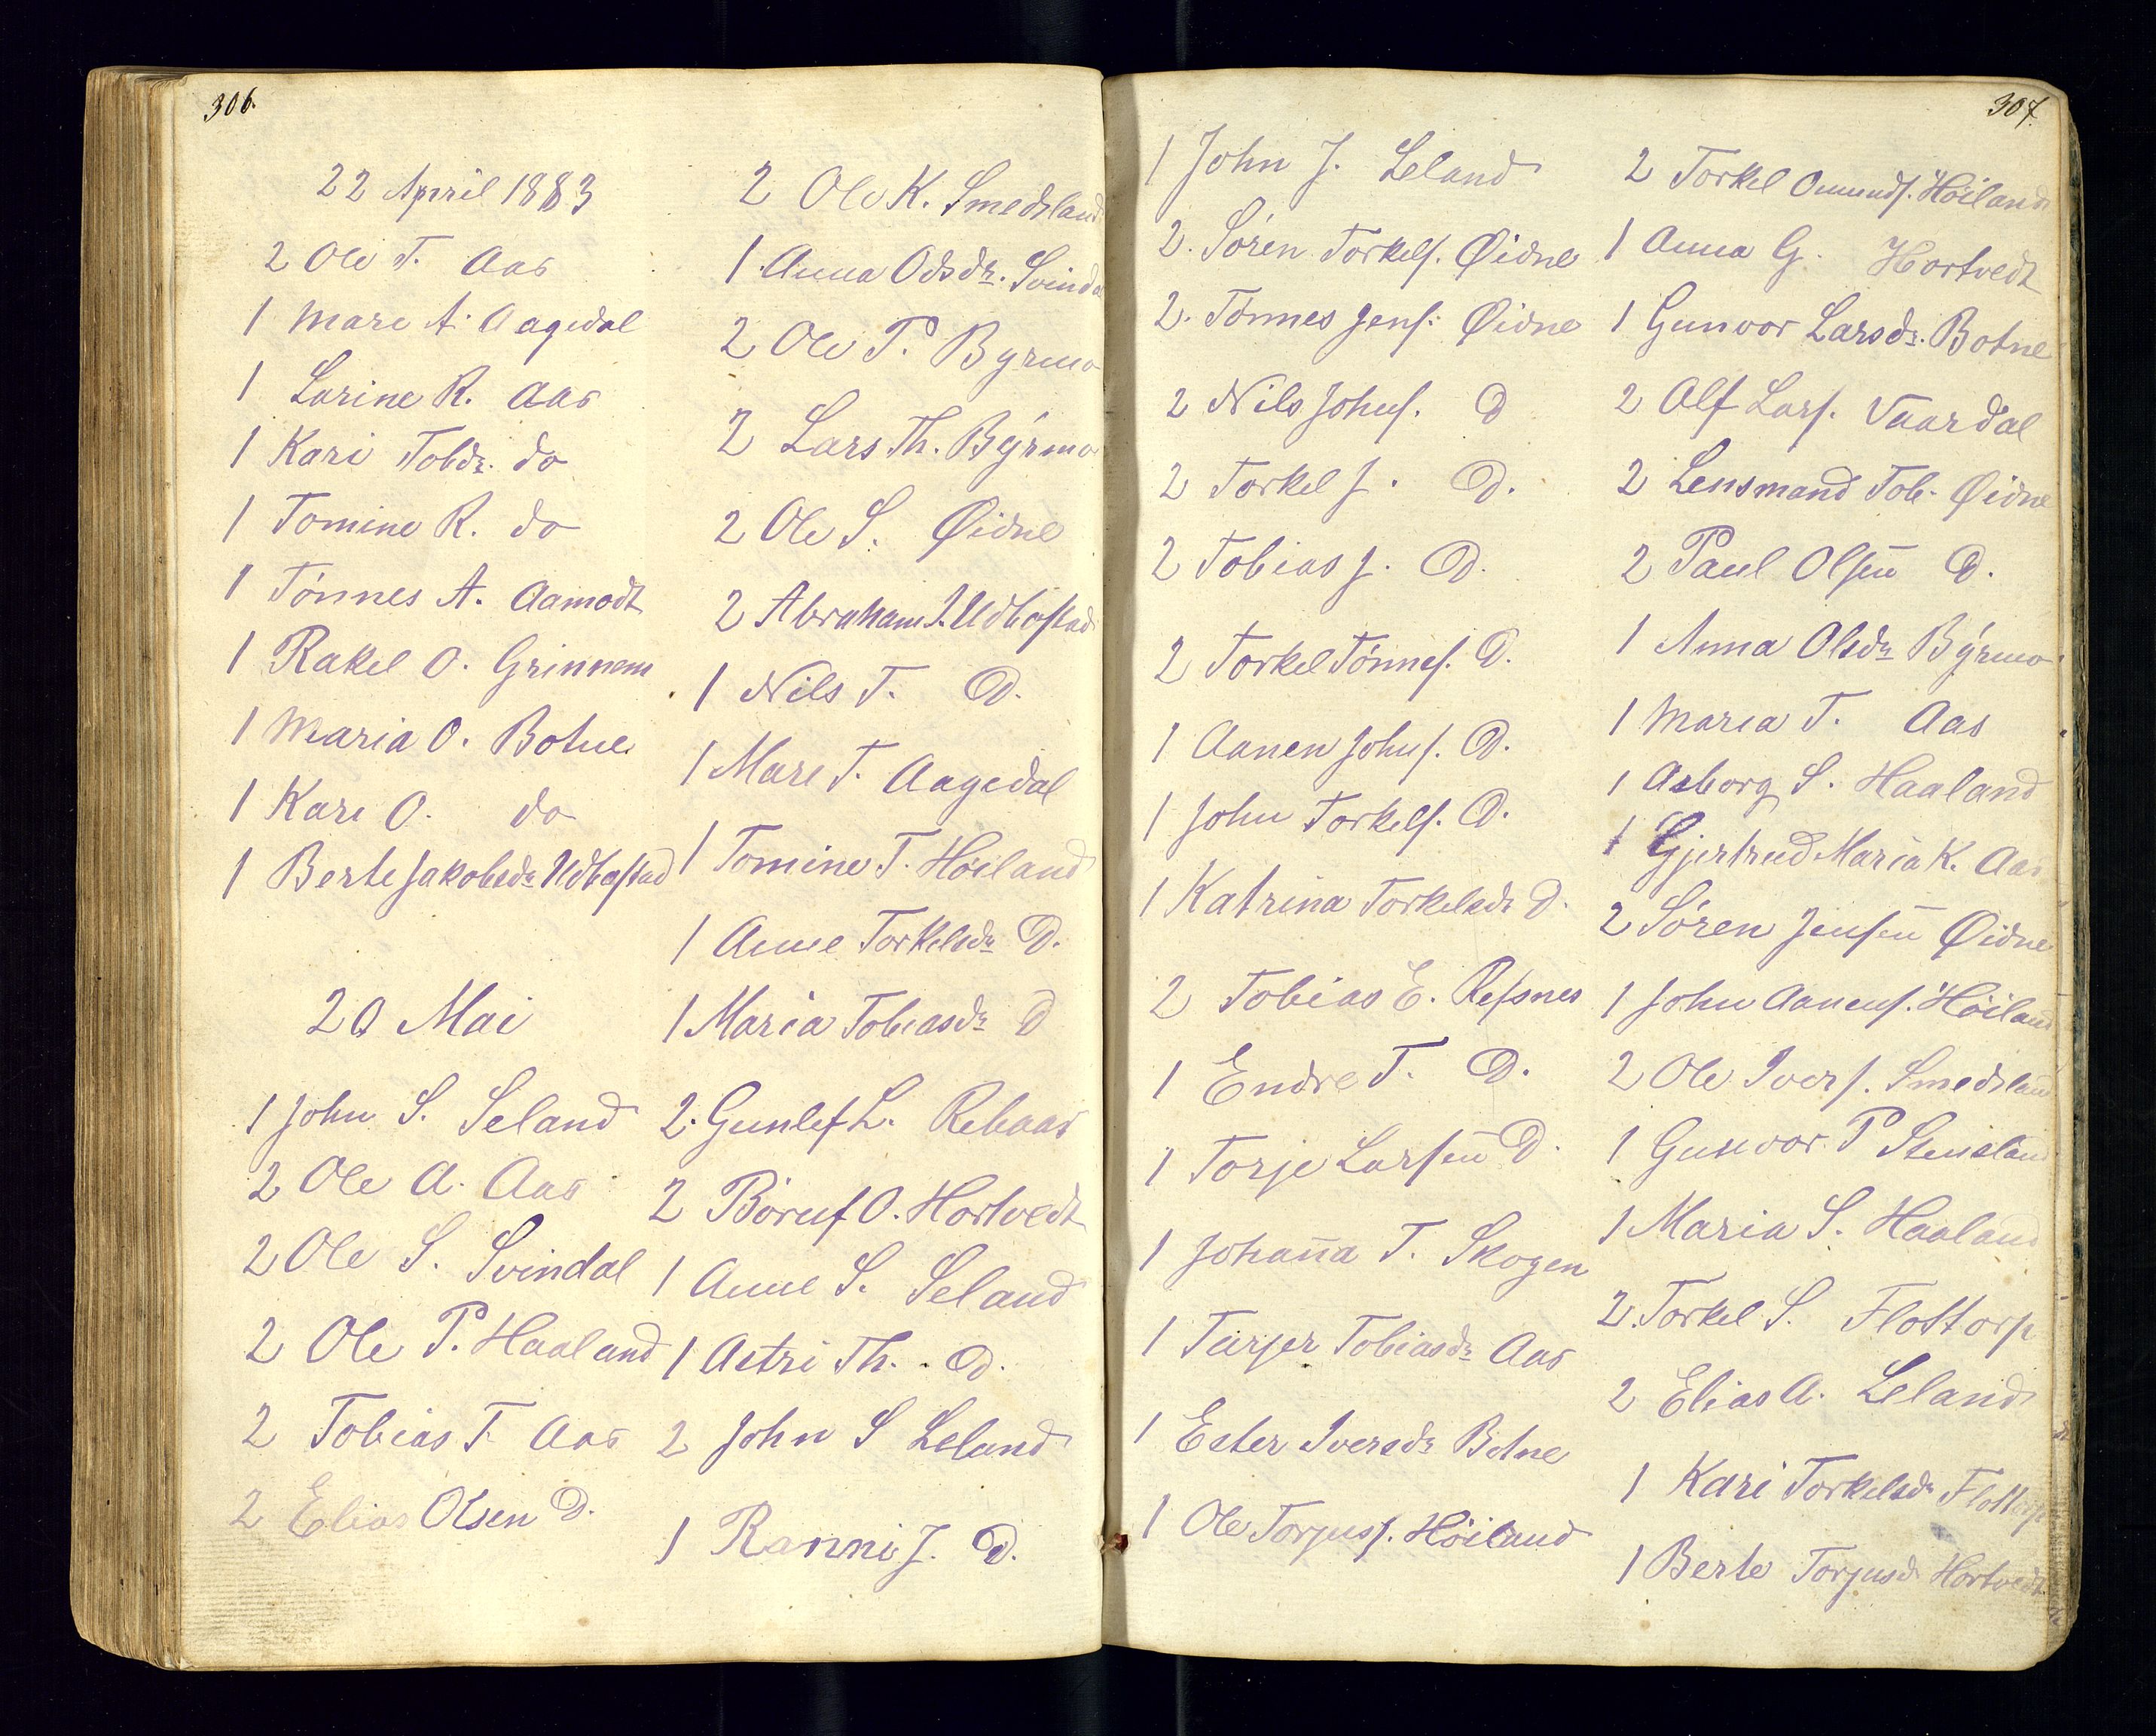 306.
22 April 1883
2 Ole T. Aas
1 Mari A. Aagedal
1 Larine R. Aas
1 Kari Tobdr. do
1 Tomine R. do
1 Tönnes A. Aamodt
1 Rakel O. Grinnem
1 Maria O. Botne
1 Kari O. do
1 Berte Jakobsdr Udbøstad
20 Mai
1 John S. Seland
2 Ole A. Aas
2 Ole S. Svindal
2 Ole P. Haaland
2 Tobias T. Aas
2 Elias Olsen D.
2 Ole K. Smedsland
1 Anna Odsdr. Svinda
2 Ole T. Byrmo
2 Lars Th. Byrmo
2 Ole S. Øidne
2 Abraham J. Udbøstad
1 Nils T. D.
1 Mari T. Aagedal
1 Tomine T. Höiland
1 Anne Torkelsdr D.
1 Maria Tobiasdr D
2. Gunlef L. Rebaas
2 Böruf O. Hortvedt
1 Anne S. Seland
1 Astri Th. D.
2 John S Leland
1 Ranni J. D.
307.
1 John J. Leland
2. Sören Torkels. Øidne
2. Tönnes Jens. Øidne
2 Nils Johns. D
2 Torkel J. D.
2 Tobias J. D.
2 Torkel Tönnes. D.
1 Aanen Johns. D.
1 John Torkels. D.
1 Katrina Torkelsdr D.
2 Tobias E. Refsnes
1 Endre T. D.
1 Torje Larsen̄ D.
1 Johan̄a T. Skogen
1 Tarjer Tobiasdr Aas
1 Ester Iversdr Botne
1 Ole Torjuss. Höiland
2 Torkel Omunds. Höiland
1 Anna G. Hortvedt
1 Gunvor Larsdr. Botne
2 Alf Lars. Vaardal
2 Lensmand Tob. Øidne
2 Paul Olsen̄ D.
1 Anna Olsdr Byrmo
1 Maria T. Aas
1 Asborg S. Haaland
1 Gjertrud Maria K. Aas
2 Sören Jensen̄ Øidne
1 John Aanens. Höiland
2 Ole Ivers. Smedsland
1 Gunvor P Stensland
1 Maria S. Haaland
2. Torkel S. Flottorp
2 Elias A. Leland
1 Kari Torkelsdr Flottorp
1 Berte Torjusd. Hortvedt